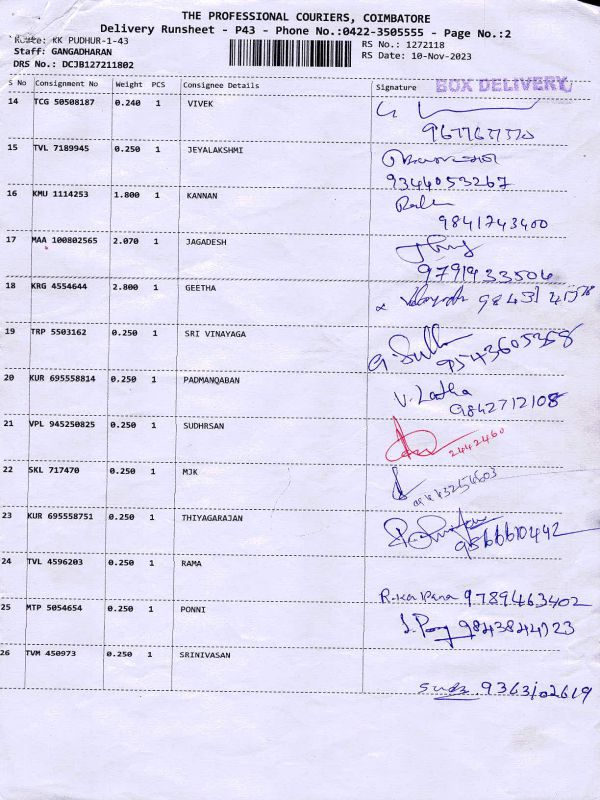 THE PROFESSIONAL COURIERS, COIMBATORE
Delivery Runsheet - P43 - Phone No.:0422-3505555 - Page No.:2
Route: KK PUDHUR-1-43
RS No.: 1272118
Staff: GANGADHARAN
RS Date: 10-Nov-2023
DRS No.: DCJB127211802
BOX DELIVERY
S No Consignment No Weight PCS Consignee Details Signature
14 TCG 50508187 0.240 1 VIVEK
15 TVL 7189945 0.250 1 JEYALAKSHMI
9344053267
16 KMU 1114253 1.800 1 KANNAN
9841743400
17 MAA 100802565 2.070 1 JAGADESH
9791933504
18 KRG 4554644 2.800 1 GEETHA
19 TRP 5503162 0.250 1 SRI VINAYAGA
9543605358
20 KUR 695558814 0.250 1 PADMANQABAN
V. Latha
9842712108
21 VPL 945250825 0.250 1 SUDHRSAN
2442460
22 SKL 717470 0.250 1 MJK
23 KUR 695558751 0.250 1 THIYAGARAJAN
9566610442
24 TVL 4596203 0.250 1 RAMA
R. Kalpana 9789463402
25 MTP 5054654 0.250 1 PONNI
26 TVM 450973 0.250 1 SRINIVASAN
9363102619